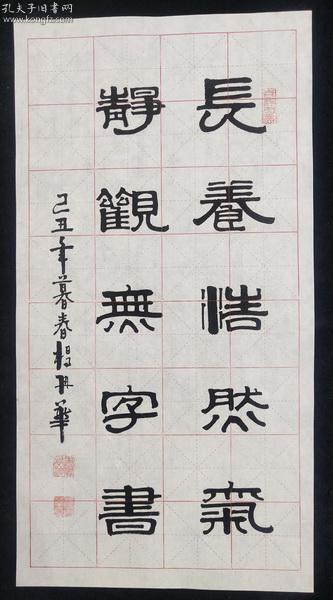 長養浩然氣
靜觀無字書
己丑年暮春楊
孔夫子旧书网
www.kongfz.com